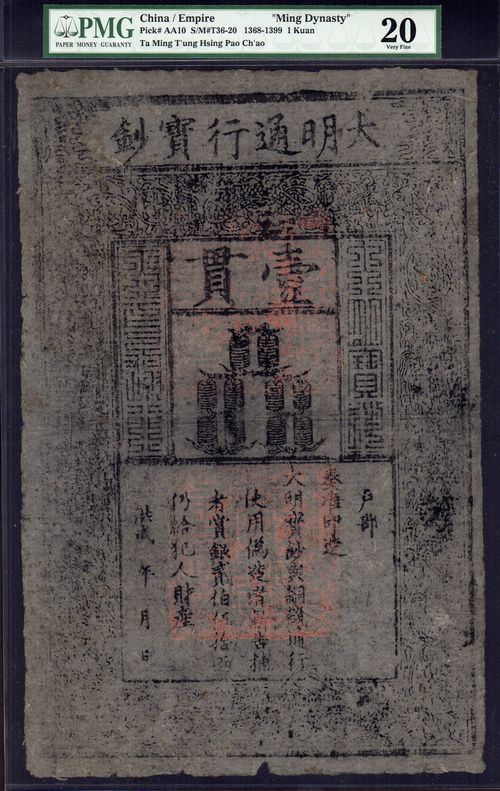 PMG
PAPER MONEY GUARANTY
China / Empire "Ming Dynasty"
Pick# AA10 S/M#T36-20 1368-1399 1 Kuan
Ta Ming T'ung Hsing Pao Ch'ao
20
Very Fine
大明通行寶鈔
壹貫
戶部
奏准印造
大明寶鈔與銅錢通行
使用偽造者斬告捕
者賞銀貳伯伍拾兩
仍給犯人財產
洪武 年 月 日